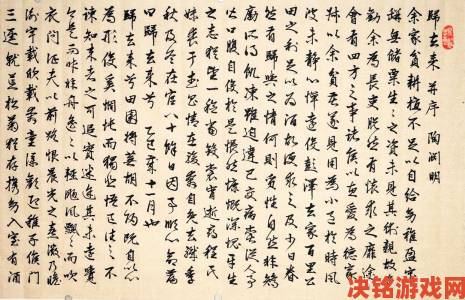 歸去來 并序 陶淵明
余家貧耕植不足以自給幼稚盈室
缾無儲粟生生之資未見其術親故多
勸余為長吏脫然有懷求之靡途
會有四方之事諸侯以惠愛為德家
叔以余貧苦遂見用為小邑於時風
波未靜心憚遠役彭澤去家百里公
田之利足以為酒故便求之及少日眷
然有歸歟之情何則質性自然非矯
厲所得飢凍雖迫違己交病嘗從人事
皆口腹自役於是悵然慷慨深愧平生
之志猶望一稔當斂裳宵逝尋程氏
妹喪于武昌情在駿奔自免去職仲
秋及冬在官八十餘日因事順心命篇
曰歸去來兮 乙巳歲十一月也
歸去來兮田園將蕪胡不歸既自以心
為形役奚惆悵而獨悲悟已往之不
諫知來者之可追實迷途其未遠覺
今是而昨非舟遙遙以輕颺風飄飄而吹
衣問征夫以前路恨晨光之熹微乃瞻
衡宇載欣載奔童僕歡迎稚子候門
三逕就荒松菊猶存攜幼入室有酒
决铭游戏网